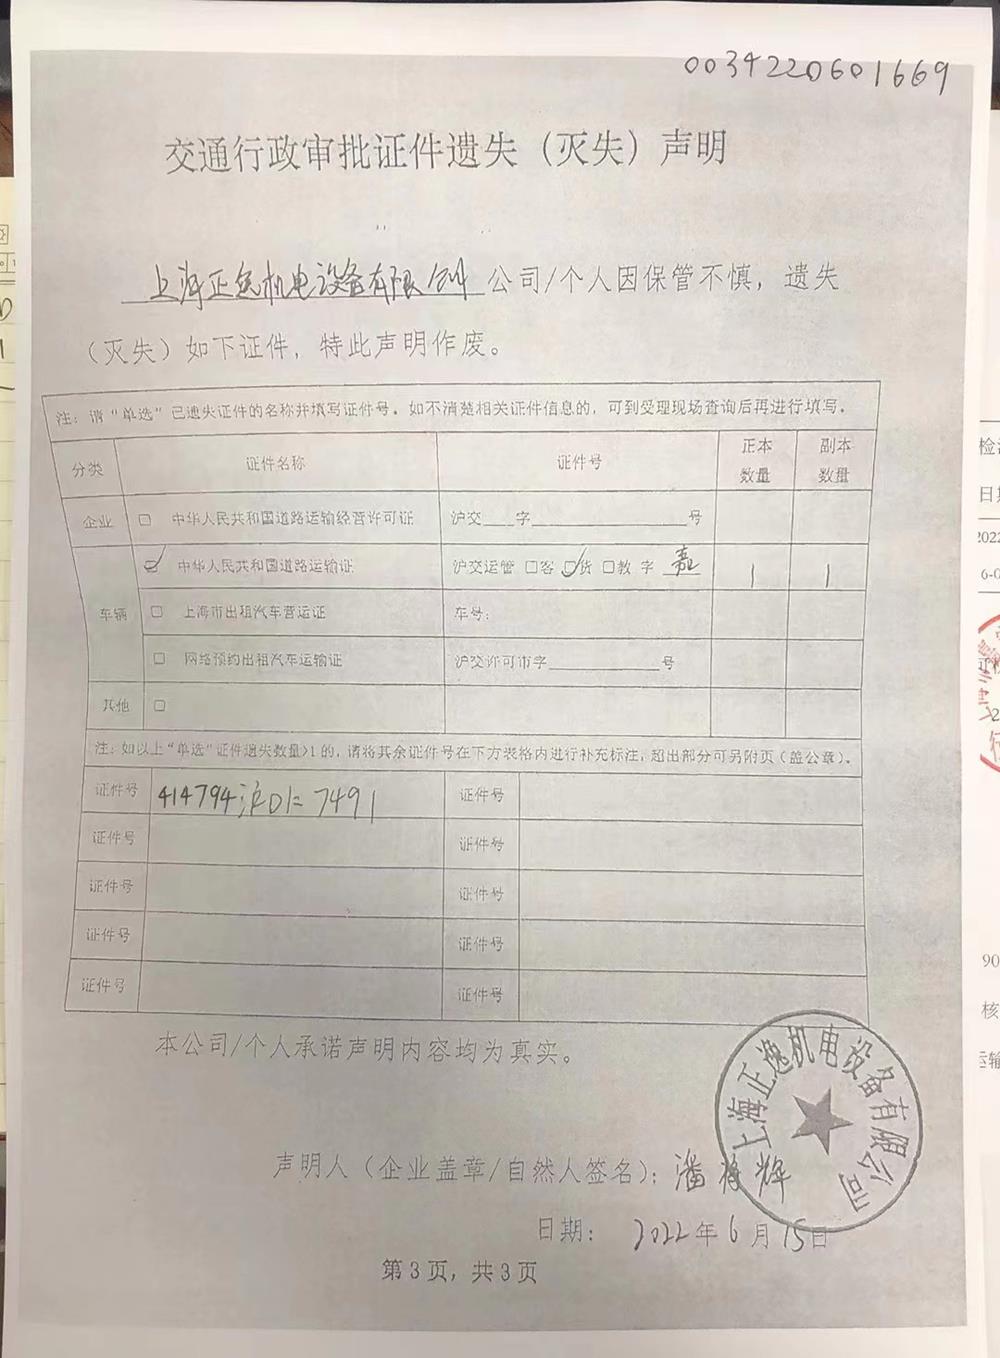 0034220601669
交通行政审批证件遗失（灭失）声明
上海正逸机电设备有限公司 公司/个人因保管不慎，遗失
（灭失）如下证件，特此声明作废。
注：请“单选”已遗失证件的名称并填写证件号。如不清楚相关证件信息的，可到受理现场查询后再进行填写。
分类 证件名称 证件号 正本数量 副本数量
企业 □ 中华人民共和国道路运输经营许可证 沪交____字____________________号
车辆 ☑ 中华人民共和国道路运输证 沪交运管 □客 ☑货 □教 字 嘉 1 1
□ 上海市出租汽车营运证 车号：
□ 网络预约出租汽车运输证 沪交许可市字______________号
其他 □
注：如以上“单选”证件遗失数量>1的，请将其余证件号在下方表格内进行补充标注，超出部分可另附页（盖公章）。
证件号 414794 沪D 7491 证件号
证件号 证件号
证件号 证件号
证件号 证件号
证件号 证件号
本公司/个人承诺声明内容均为真实。
上海正逸机电设备有限公司
声明人（企业盖章/自然人签名）：潘 辉
日期： 2022年6月15日
第3页，共3页
检
日期
2022
6-0
90
核
运输